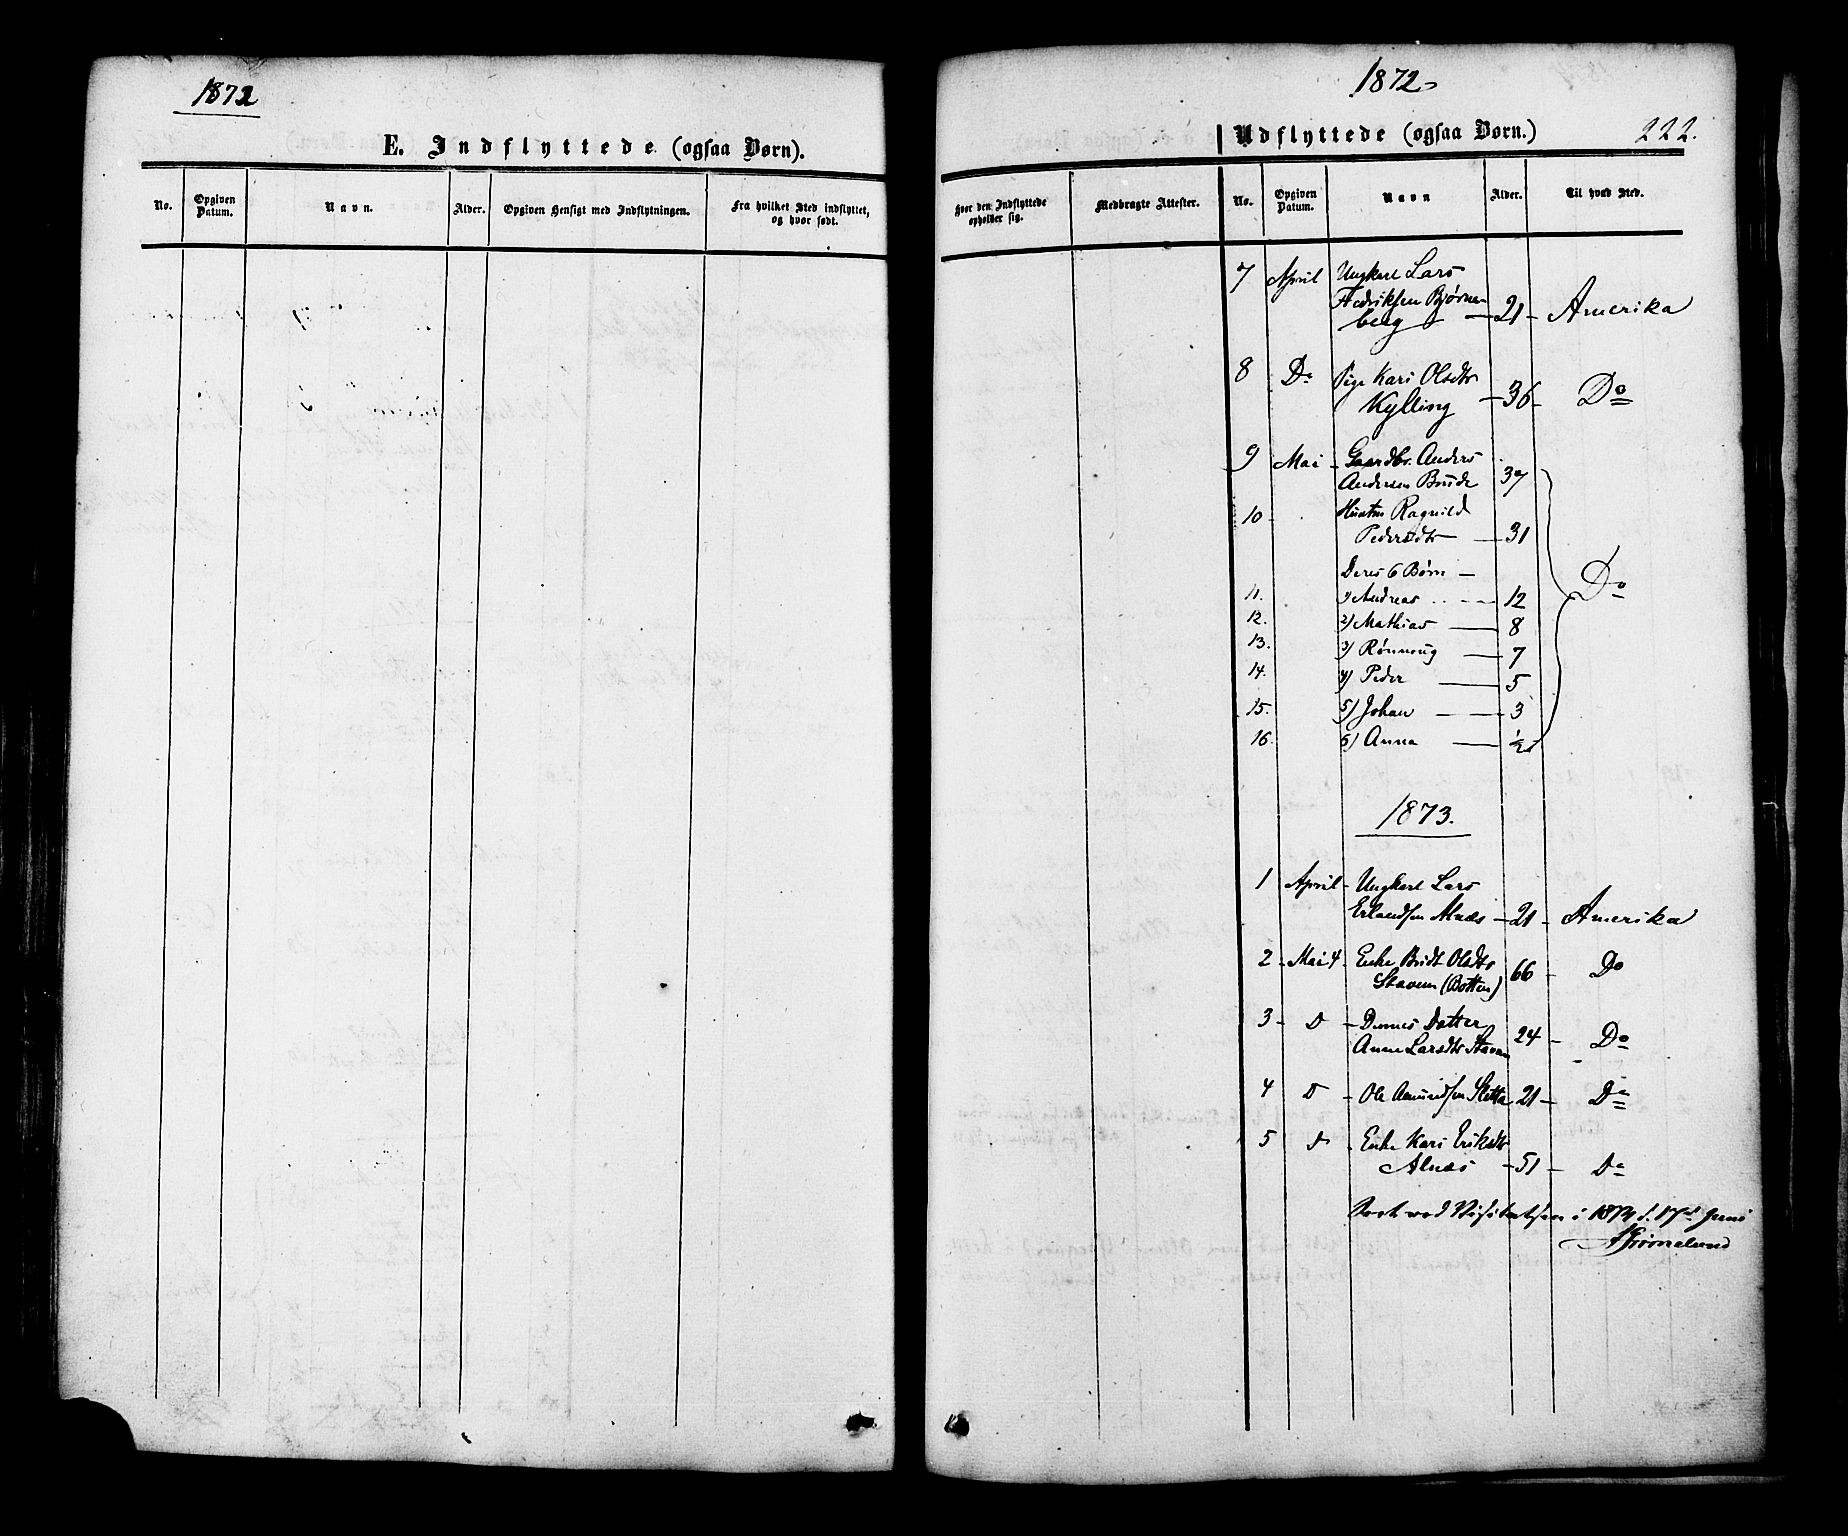 1872
E. Indflyttede (ogsaa Børn).
No. Opgiven Datum. Navn. Alder. Opgiven Hensigt med Indflytningen. Fra hvilket Sted indflyttet, og hvor født.
1872
Udflyttede (ogsaa Børn.) 222.
Hvor den Indflyttede opholder sig. Medbragte Attester. No. Opgiven Datum. Navn Alder. Til hvad Sted.
7 April Ungkarl Lars
Fredriksen Bjørne-
berg 21 Amerika
8 Do Pige Kari Olsdtr
Kylling 36 Do
9 Mai Gaardbr. Anders
Andersen Brude 37
10 Hustru Ragnild
Pedersdtr 31
Deres 6 Børn Do
11. 1) Andreas 12
12. 2) Mathias 8
13. 3) Rønnoug 7
14. 4) Peder 5
15. 5) Johan 3
16. 6) Anna 1/2
1873.
1 April Ungkarl Lars
Erlandsen Alnæs 21 Amerika
2 Mai 4 Enke Brit Olsdtr
Stavem (Botten) 66 Do
3 D Dennes Datter
Anne Larsdtr Stavem 24 Do
4 D Ole Amundsen Sletta 21 Do
5 D Enke Kari Eriksdtr
Alnæs 51 Do
ved Visitatsen i 1874 d. 17d Juni
Grimelund